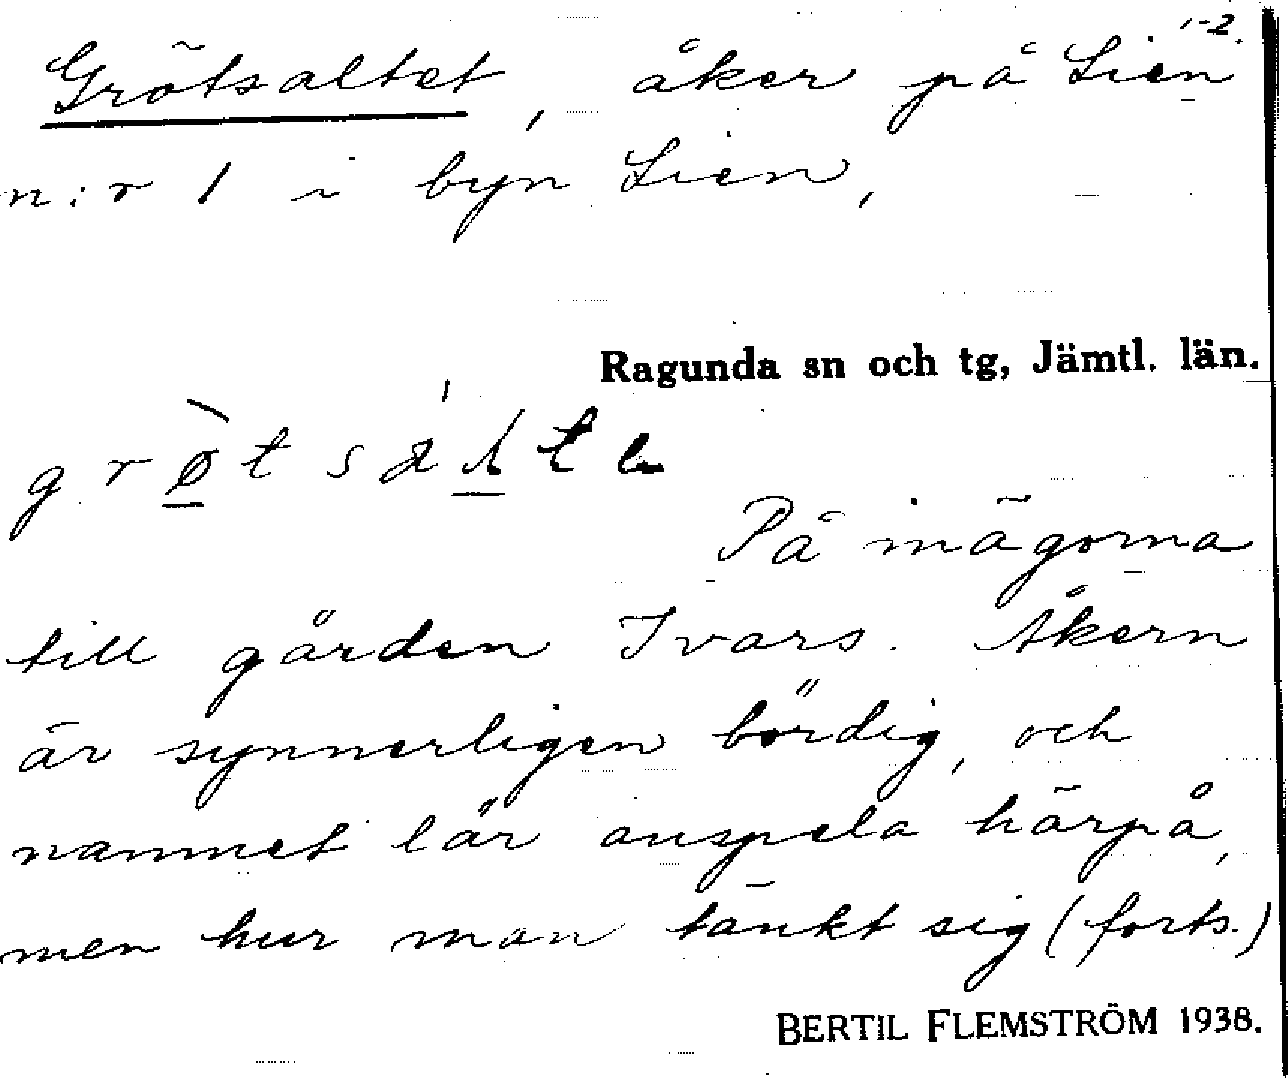 1-2.
Grötsaltet, åker på Lien
n:r 1 i byn Lien,
Ragunda sn och tg, Jämtl. län.
På inägorna
till gården Ivars. Åkern
är synnerligen bördig, och
namnet lär anspela härpå,
men hur man tänkt sig (forts.)
BERTIL FLEMSTRÖM 1938.